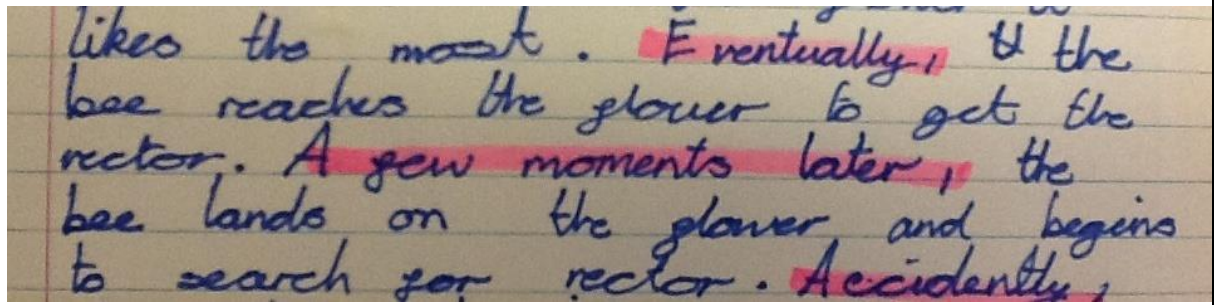 likes the most. Eventually, the
bee reaches the flower to get the
nectar. A few moments later, the
bee lands on the flower and begins
to search for nectar. Accidently,